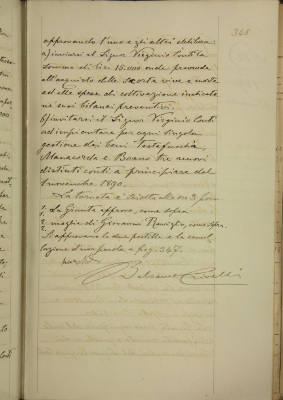 348
approvando l'uno e gli altri delibera:
a) inviare al Signor Virginio Conti la
somma di lire 15.000 onde provveda
all'acquisto delle scorte vive e morte
ed alle spese di coltivazione indicate
ne' suoi bilanci preventivi.
b) invitare il Signor Virginio Conti
ad impiantare per ogni singola
gestione dei beni
Manacorda e Boano tre nuovi
distinti conti a principiare dal
1 novembre 1890.
La tornata è sciolta alle ore 3 pom.
1. La Giunta approva, come sopra
2. moglie di Giovanni come sopra.
Si approvano le due postille e la cancel-
lazione d'una parola a pag. 347.